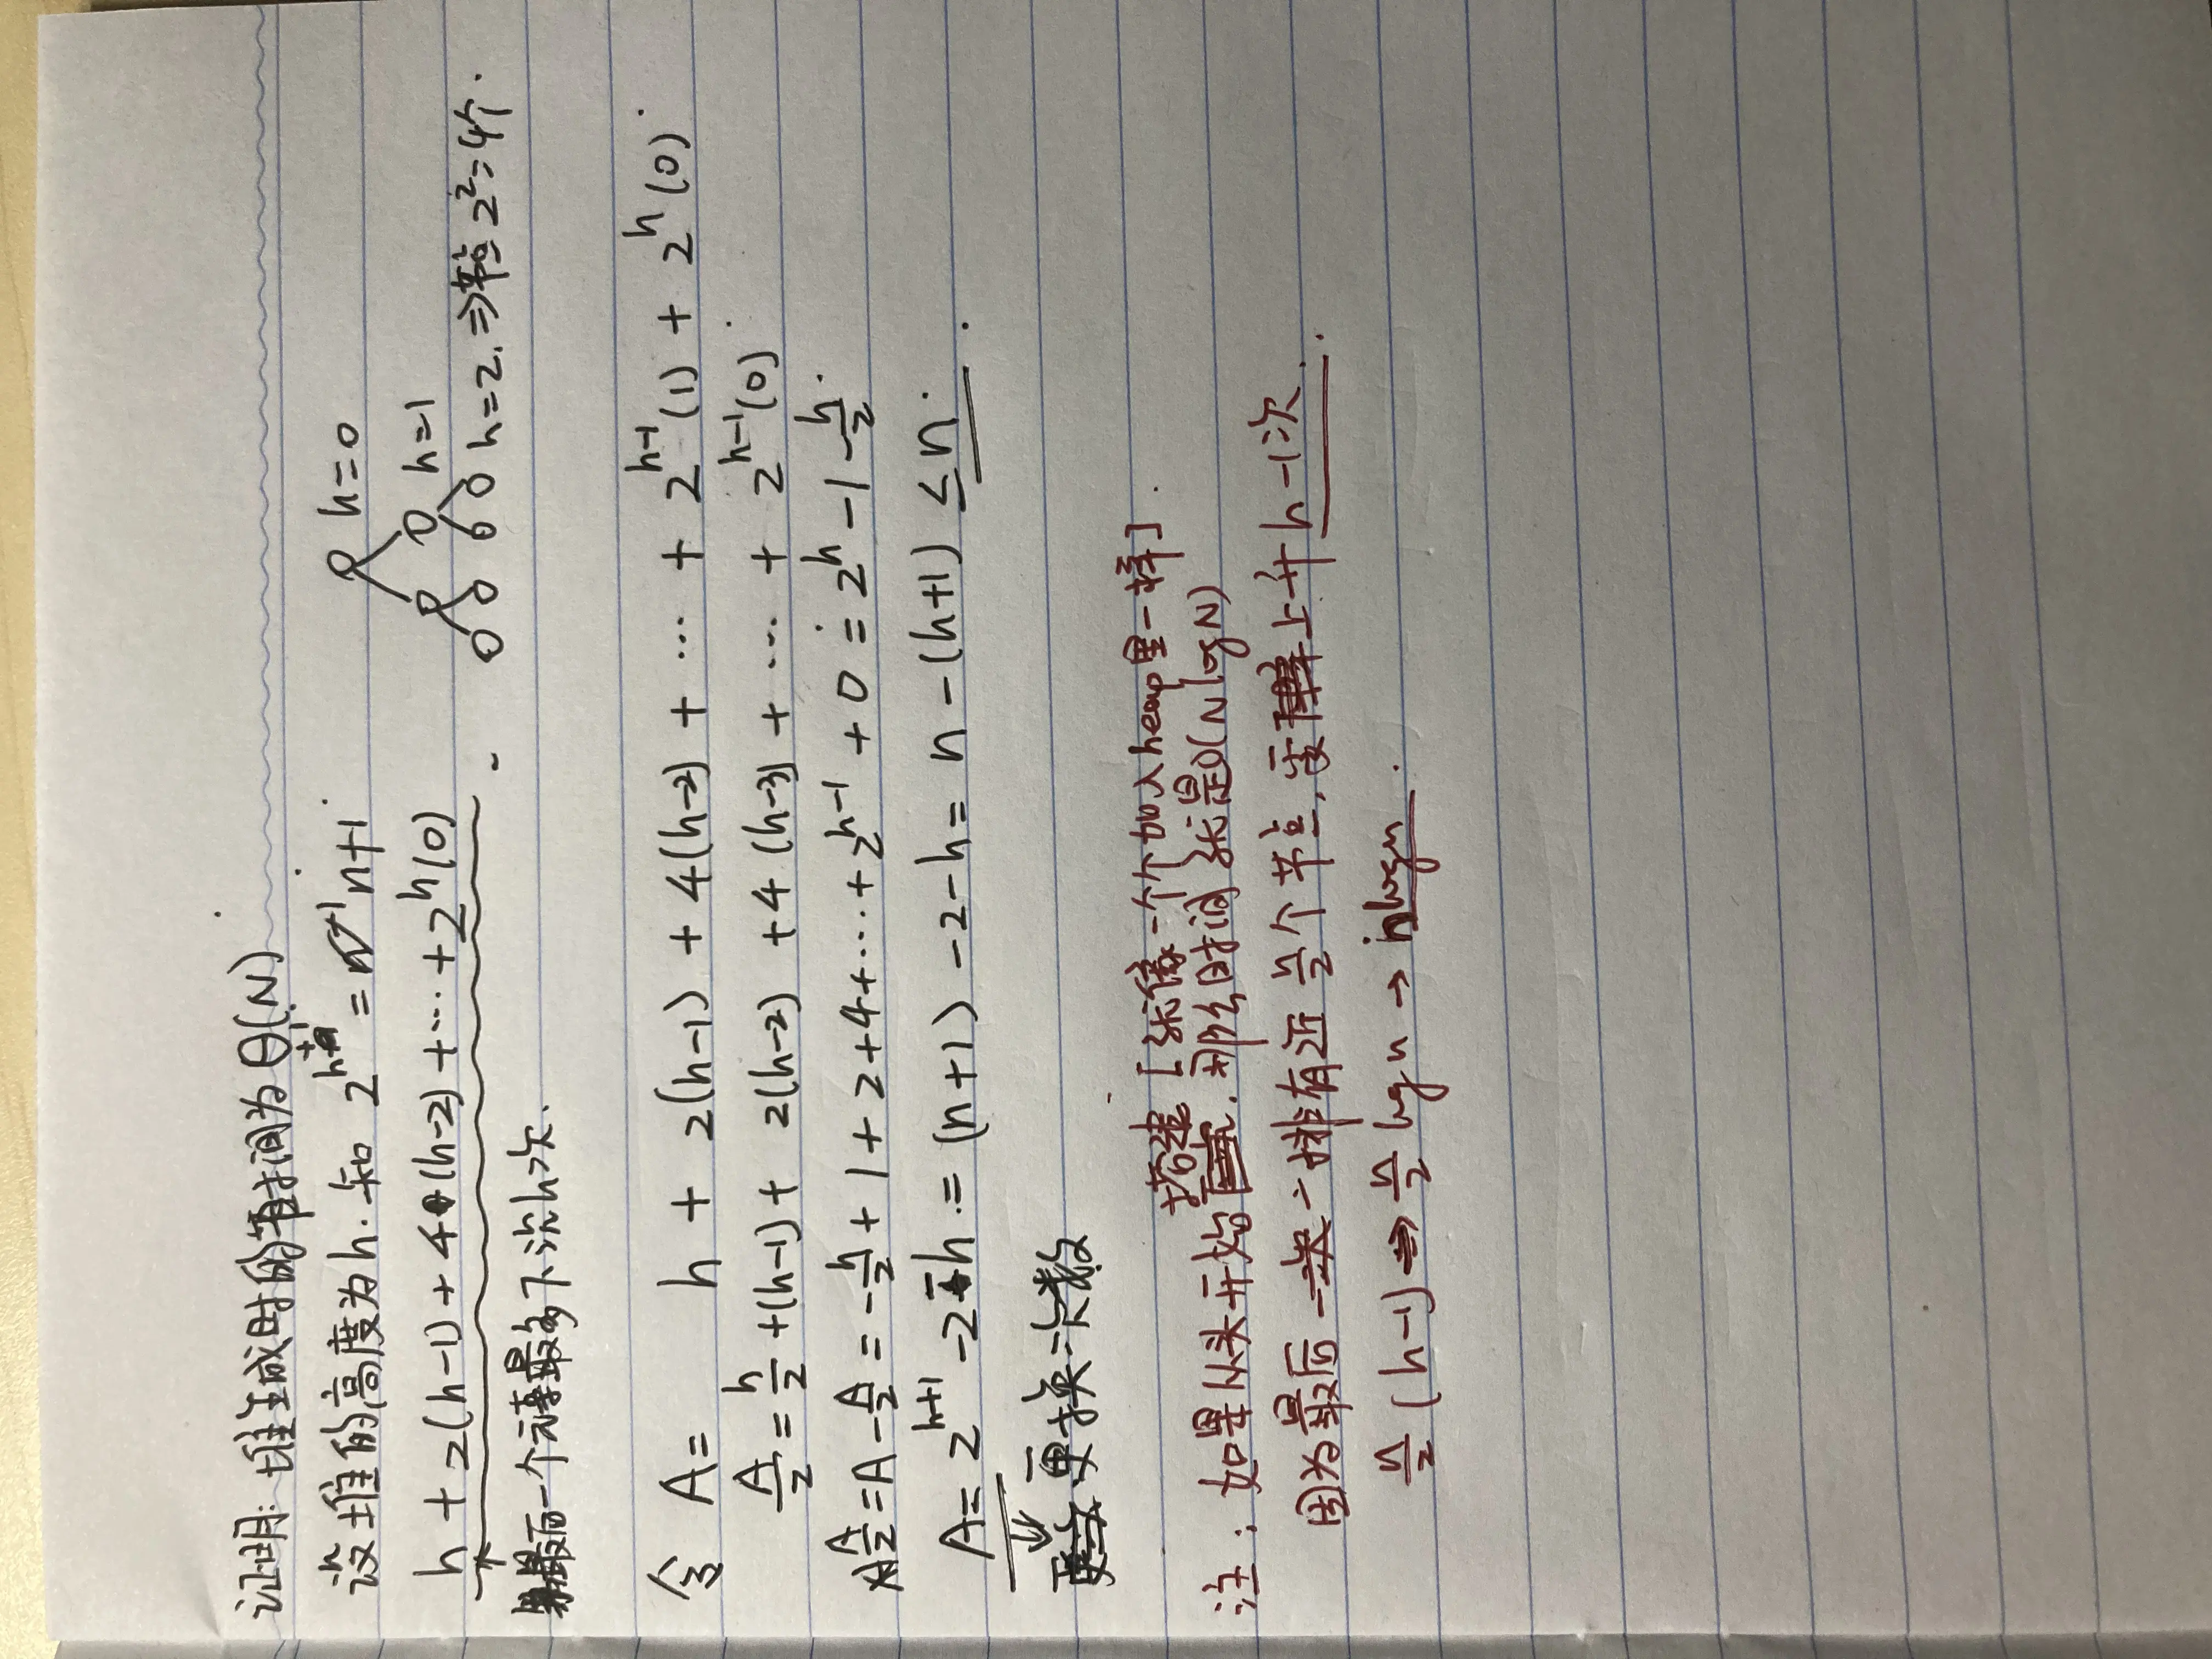 证明: 堆生成时的时间为θ(N).
设堆的高度为h. 知 2^{h+1} = n+1.
h=0
h=1
h=2. ⇒ 节点 2^2=4个.
h + 2(h-1) + 4(h-2) + ... + 2^h(0)
最后一个元素最多下沉h次.
令 A = h + 2(h-1) + 4(h-2) + ... + 2^{h-1}(1) + 2^h(0).
A/2 = h/2 + (h-1) + 2(h-2) + 4(h-3) + ... + 2^{h-1}(0).
A/2 = A - A/2 = -h/2 + 1 + 2 + 4 + ... + 2^{h-1} + 0 = 2^h - 1 - h/2.
A = 2^{h+1} - 2 - h. = (n+1) - 2 - h = n - (h+1) ≤ n.
更换次数
注: 如果从头开始搭建 [就像一个个加入heap里一样].
那么时间就是O(N log N)
因为最后一排有近 n/2 个节点, 要上升 h-1次.
n/2 (h-1) ⇒ n/2 log n → nlogn.